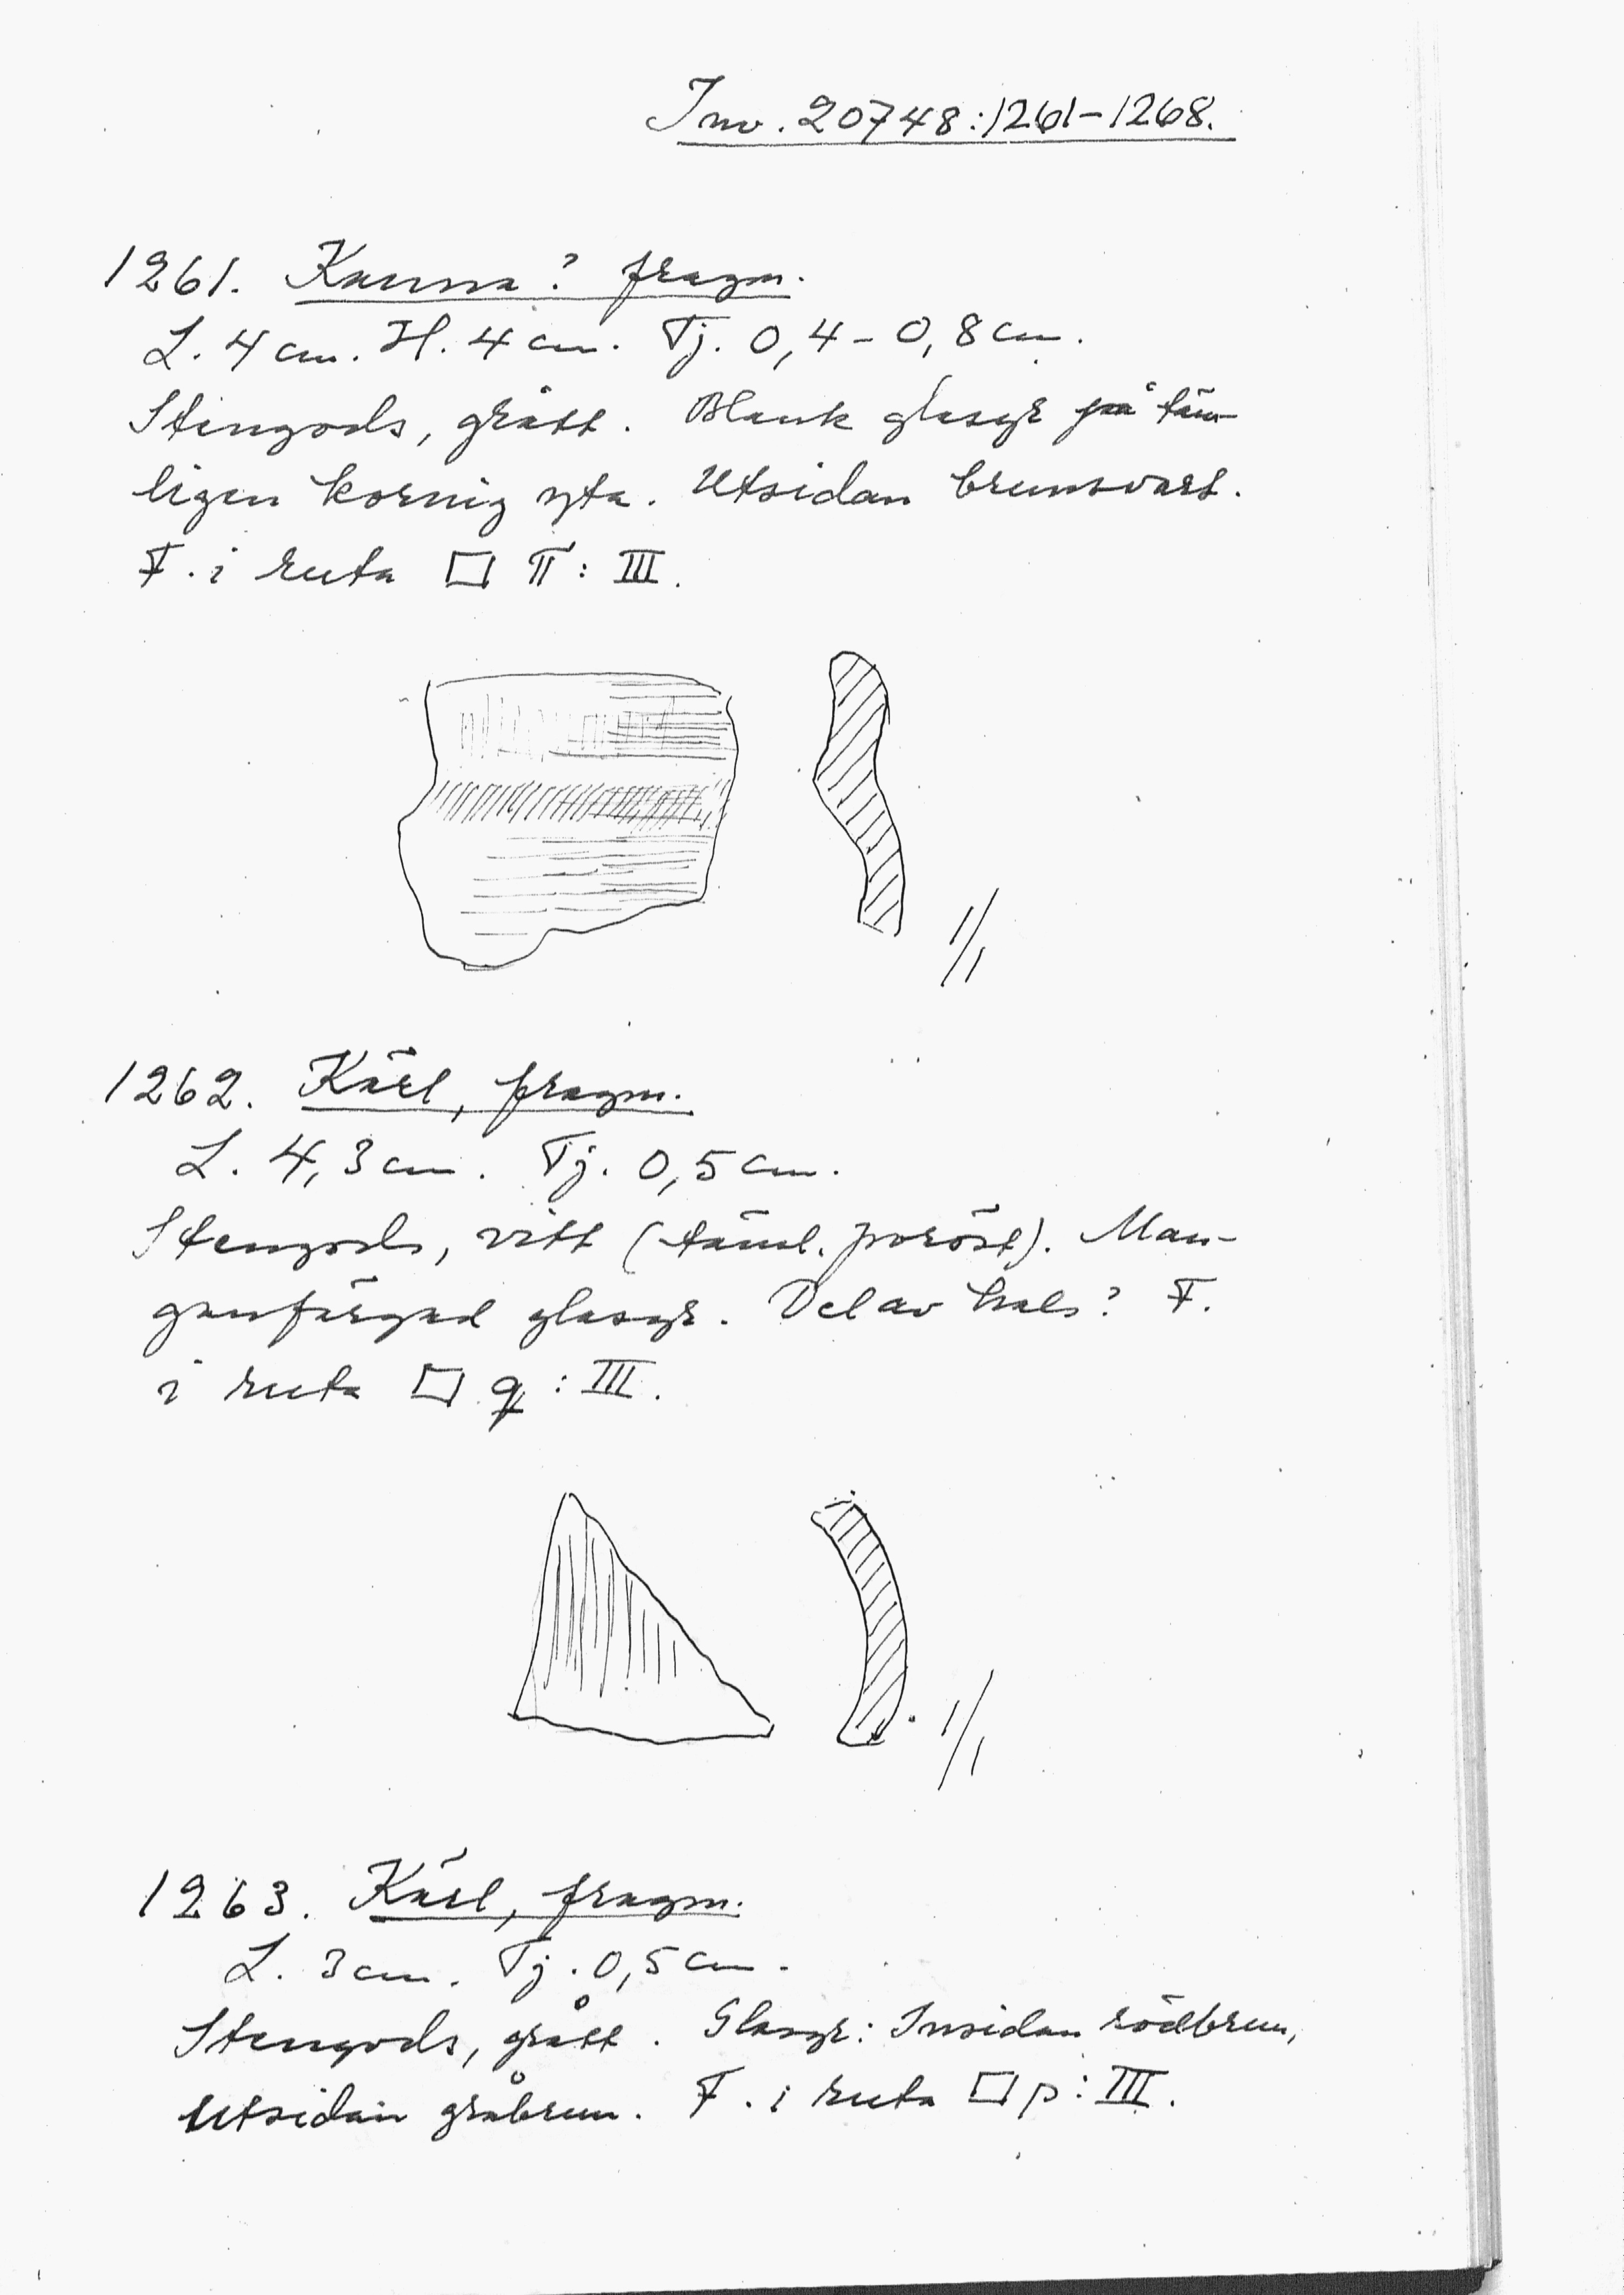 Inv. 20748:1261-1268.
1261. Kanna? fragm.
L. 4 cm. H. 4 cm. Tj. 0,4-0,8 cm.
Stengods, grått. Blank glasyr på täm-
ligen kornig yta. Utsidan brunsvart.
F. i ruta □ π: III.
1/1
1262. Kärl, fragm.
L. 4,3 cm. Tj. 0,5 cm.
Stengods, vitt (täml. poröst). Man-
ganfärgad glasyr. Del av hals? F.
i ruta □ q: III.
1/1
1263. Kärl, fragm.
L. 3 cm. Tj. 0,5 cm.
Stengods, grått. Glasyr: Insidan rödbrun,
utsidan gråbrun. F. i ruta □ p: III.